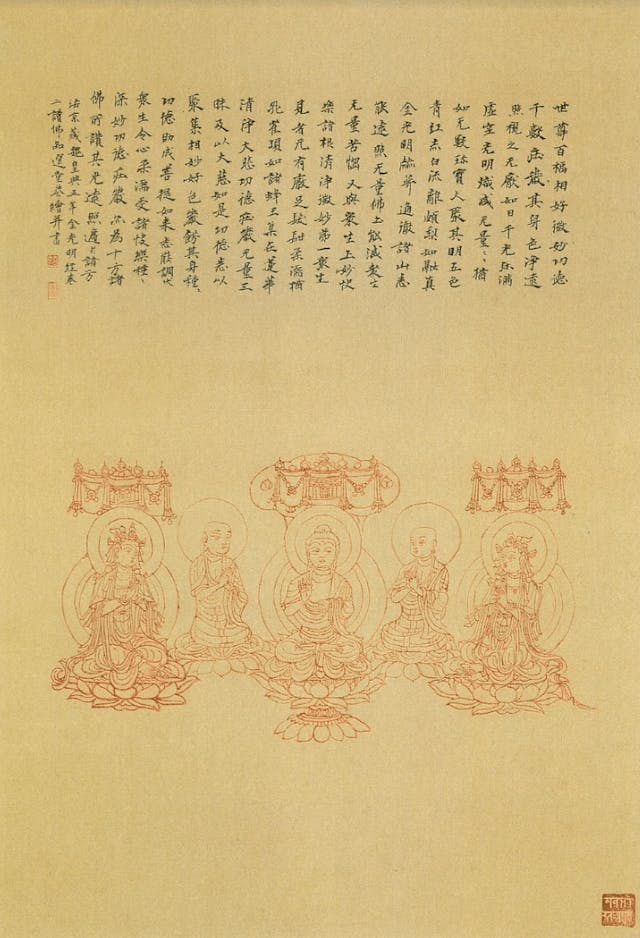 世尊百福相好微妙功德
千數莊嚴其身色淨遠
照視之无厭如日千光弥滿
虛空光明熾盛无量〻猶
如无數珎寶大聚其明五色
青紅赤白流離頗梨如融真
金光明通徹諸山悉
能遠照无量佛土能滅衆生
无量苦惱又與衆生上妙快
樂諸根清淨微妙第一衆生
見者无有厭足髮紺柔濡猶
孔雀項如諸蜂王集在蓮華
清淨大悲功德莊嚴无量三
昧及以大慈如是功德悉以
聚集相妙好色嚴飾其身種〻
功德助成菩提如來悉能調伏
衆生令心柔濡受諸快樂種〻
深妙功德莊嚴亦為十方諸
佛所讚其光遠照遍於諸方
法京藏魏皇興五年金光明經卷
二讚佛品選堂恭繪并書